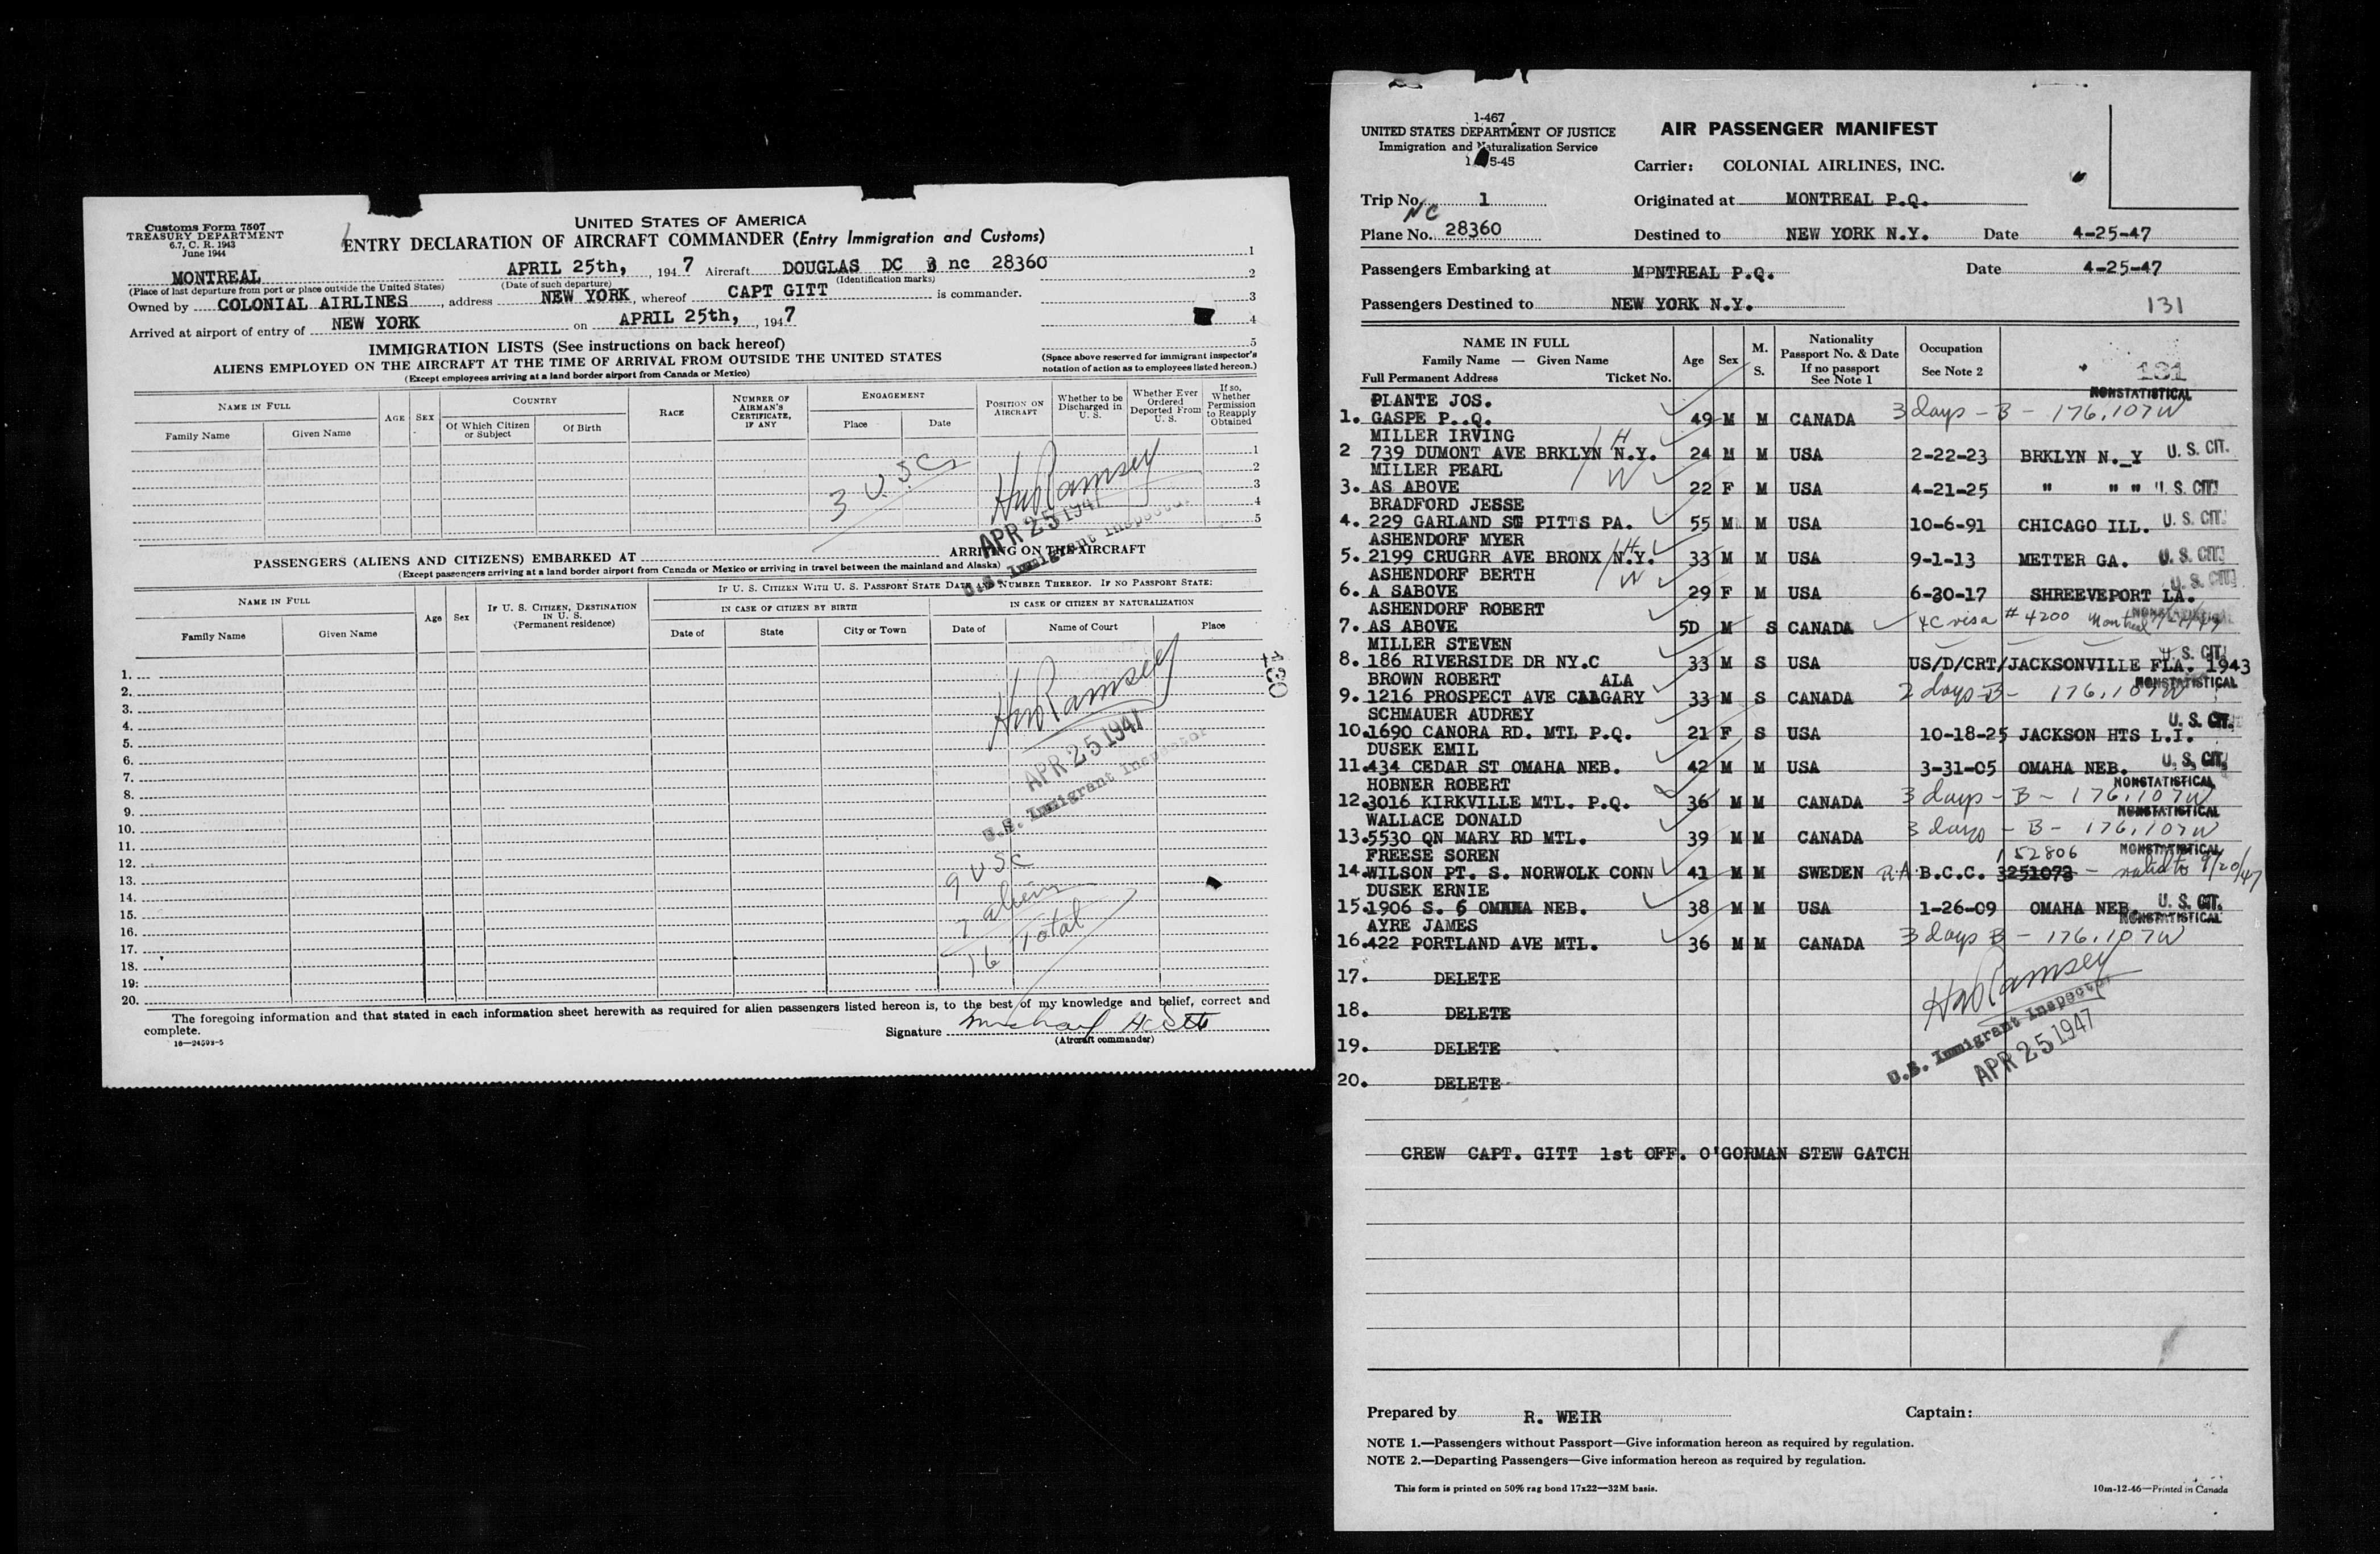 Customs Form 7507
TREASURY DEPARTMENT
6.7, C. R. 1943
June 1944
UNITED STATES OF AMERICA
ENTRY DECLARATION OF AIRCRAFT COMMANDER (Entry Immigration and Customs)
1
MONTREAL APRIL 25th, , 1947 Aircraft DOUGLAS DC 3 nc 28360
2
(Place of last departure from port or place outside the United States) (Date of such departure) (Identification marks)
Owned by COLONIAL AIRLINES , address NEW YORK , whereof CAPT GITT is commander.
3
Arrived at airport of entry of NEW YORK on APRIL 25th, , 1947
4
IMMIGRATION LISTS (See instructions on back hereof)
5
ALIENS EMPLOYED ON THE AIRCRAFT AT THE TIME OF ARRIVAL FROM OUTSIDE THE UNITED STATES
(Space above reserved for immigrant inspector's notation of action as to employees listed hereon.)
(Except employees arriving at a land border airport from Canada or Mexico)
NAME IN FULL
Family Name Given Name
AGE SEX
COUNTRY
Of Which Citizen or Subject Of Birth
RACE
NUMBER OF AIRMAN'S CERTIFICATE, IF ANY
ENGAGEMENT
Place Date
POSITION ON AIRCRAFT
Whether to be Discharged in U. S.
Whether Ever Ordered Deported From U. S.
If so, Whether Permission to Reapply Obtained
1
2
3
4
5
3 USC
APR 25 1947
U.S. Immigrant Inspector
PASSENGERS (ALIENS AND CITIZENS) EMBARKED AT ARRIVING ON THE AIRCRAFT
(Except passengers arriving at a land border airport from Canada or Mexico or arriving in travel between the mainland and Alaska)
NAME IN FULL
Family Name Given Name
Age Sex
IF U. S. CITIZEN, DESTINATION IN U. S.
(Permanent residence)
IF U. S. CITIZEN WITH U. S. PASSPORT STATE DATE AND NUMBER THEREOF. IF NO PASSPORT STATE:
IN CASE OF CITIZEN BY BIRTH IN CASE OF CITIZEN BY NATURALIZATION
Date of State City or Town Date of Name of Court Place
1.
2.
3.
4.
5.
6.
7.
8.
9.
10.
11.
12.
13.
14.
15.
16.
17.
18.
19.
20.
Ramsey
APR 25 1947
U.S. Immigrant Inspector
9 USC
7 aliens
16 Total
The foregoing information and that stated in each information sheet herewith as required for alien passengers listed hereon is, to the best of my knowledge and belief, correct and
complete.
16—24593-5
Signature
(Aircraft commander)
1-467
UNITED STATES DEPARTMENT OF JUSTICE
Immigration and Naturalization Service
AIR PASSENGER MANIFEST
Carrier: COLONIAL AIRLINES, INC.
Trip No. 1 Originated at MONTREAL P.Q.
NC
Plane No. 28360 Destined to NEW YORK N.Y. Date 4-25-47
Passengers Embarking at MPNTREAL P.Q. Date 4-25-47
Passengers Destined to NEW YORK N.Y. 131
NAME IN FULL
Family Name — Given Name
Full Permanent Address Ticket No.
Age Sex M. S.
Nationality
Passport No. & Date
If no passport
See Note 1
Occupation
See Note 2
131
NONSTATISTICAL
PLANTE JOS.
1. GASPE P..Q. 49 M M CANADA 3 days - B - 176.107W
MILLER IRVING H
2 739 DUMONT AVE BRKLYN N.Y. 24 M M USA 2-22-23 BRKLYN N._Y U. S. CIT.
MILLER PEARL W
3. AS ABOVE 22 F M USA 4-21-25 " " " U. S. CIT.
BRADFORD JESSE
4. 229 GARLAND ST PITTS PA. 55 M M USA 10-6-91 CHICAGO ILL. U. S. CIT.
ASHENDORF MYER H
5. 2199 CRUGRR AVE BRONX N.Y. 33 M M USA 9-1-13 METTER GA. U. S. CIT.
ASHENDORF BERTH W
6. A SABOVE 29 F M USA 6-30-17 SHREEVEPORT LA. U. S. CIT.
ASHENDORF ROBERT NONSTATISTICAL
7. AS ABOVE 5D M S CANADA 4C visa # 4200 Montreal
MILLER STEVEN U. S. CIT.
8. 186 RIVERSIDE DR NY.C 33 M S USA US/D/CRT/JACKSONVILLE FLA. 1943
BROWN ROBERT ALA NONSTATISTICAL
9. 1216 PROSPECT AVE CALGARY 33 M S CANADA 2 days-B- 176.107W
SCHMAUER AUDREY U. S. CIT.
10. 1690 CANORA RD. MTL P.Q. 21 F S USA 10-18-25 JACKSON HTS L.I.
DUSEK EMIL
11. 434 CEDAR ST OMAHA NEB. 42 M M USA 3-31-05 OMAHA NEB. U. S. CIT.
HOBNER ROBERT NONSTATISTICAL
12. 3016 KIRKVILLE MTL. P.Q. 36 M M CANADA 3 days - B - 176.107W
WALLACE DONALD NONSTATISTICAL
13. 5530 QN MARY RD MTL. 39 M M CANADA 3 days - B - 176.107W
FREESE SOREN 152806 NONSTATISTICAL
14. WILSON PT. S. NORWOLK CONN 41 M M SWEDEN RA B.C.C. 3251073 - valid to 9/20/47
DUSEK ERNIE
15. 1906 S. 6 OMAHA NEB. 38 M M USA 1-26-09 OMAHA NEB. U. S. CIT.
AYRE JAMES NONSTATISTICAL
16. 422 PORTLAND AVE MTL. 36 M M CANADA 3 days B - 176.107W
17. DELETE
18. DELETE
19. DELETE
20. DELETE
Ramsey
U.S. Immigrant Inspector
APR 25 1947
CREW CAPT. GITT 1st OFF. O'GORMAN STEW GATCH
Prepared by R. WEIR Captain:
NOTE 1.—Passengers without Passport—Give information hereon as required by regulation.
NOTE 2.—Departing Passengers—Give information hereon as required by regulation.
This form is printed on 50% rag bond 17x22—32M basis. 10m-12-46—Printed in Canada